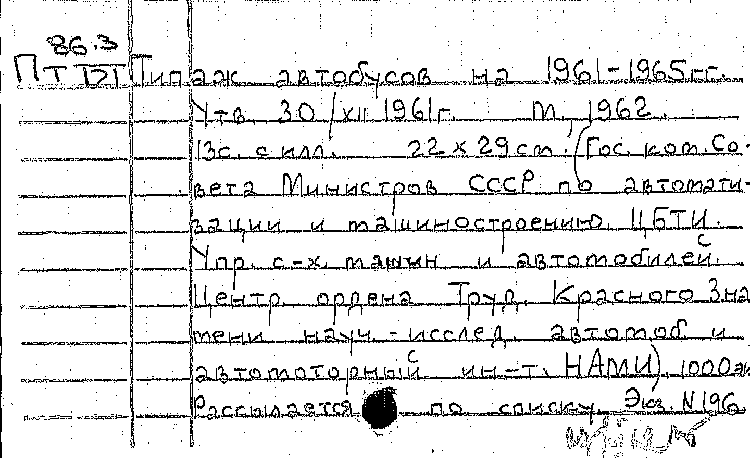 86.3
Пт Типаж автобусов на 1961-1965 гг.
Утв. 30/XII 1961г. М., 1962.
13с. с илл. 22 x 29 см. (Гос. ком. Со-
вета Министров СССР по автомати-
зации и машиностроению. ЦБТИ.
Упр. с-х. машин и автомобилей.
Центр. ордена Труд. Красного Зна
мени науч.-исслед. автомоб. и
автомоторный ин-т. НАМИ). 1000 эк
Рассылается по списку. Экз. N 196